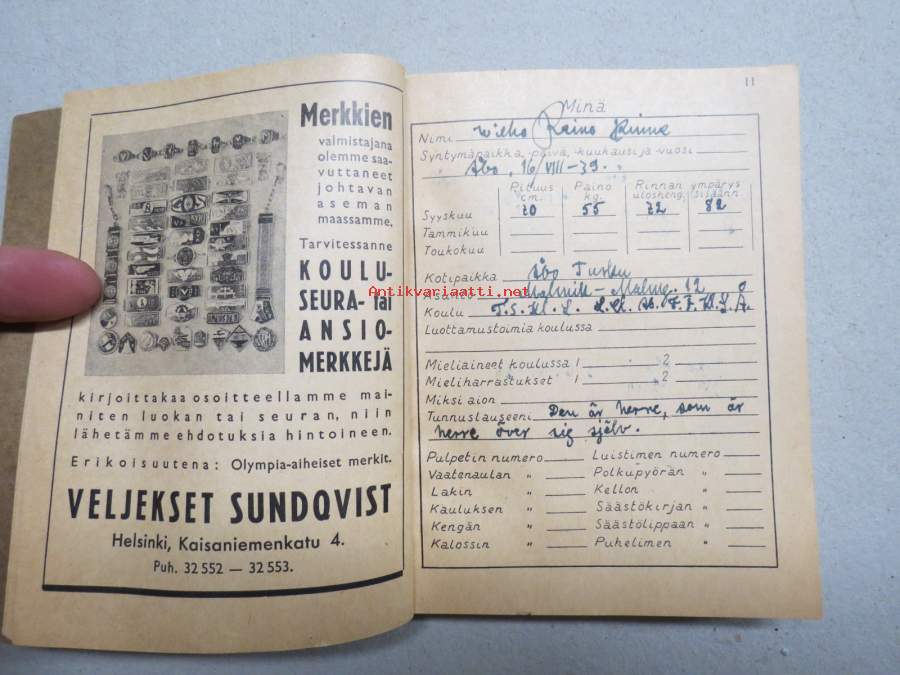 Merkkien
valmistajana
olemme saa-
vuttaneet
johtavan
aseman
maassamme.
Tarvitessanne
KOULU-
SEURA- tai
ANSIO-
MERKKEJÄ
kirjoittakaa osoitteellamme mai-
niten luokan tai seuran, niin
lähetämme ehdotuksia hintoineen.
Erikoisuutena: Olympia-aiheiset merkit.
VELJEKSET SUNDQVIST
Helsinki, Kaisaniemenkatu 4.
Puh. 32 552 — 32 553.
11
Minä
Nimi Raino
Syntymäpaikka, -päivä, -kuukausi ja -vuosi
Åbo, 16/VIII -39.
Pituus Paino Rinnan ympärys
cm. kg. ulosheng. sisäänn.
Syyskuu 55 72 82
Tammikuu
Toukokuu
Kotipaikka Åbo Turku
Malmg. 12
Koulu
Luottamustoimia koulussa
Mieliaineet koulussa 1 2
Mieliharrastukset 1 2
Miksi aion
Tunnuslauseeni Den är herre, som är
herre över sig själv.
Pulpetin numero Luistimen numero
Vaatenaulan " Polkupyörän "
Lakin " Kellon "
Kauluksen " Säästökirjan "
Kengän " Säästölippaan "
Kalossin " Puhelimen "
Antikvariaatti.net